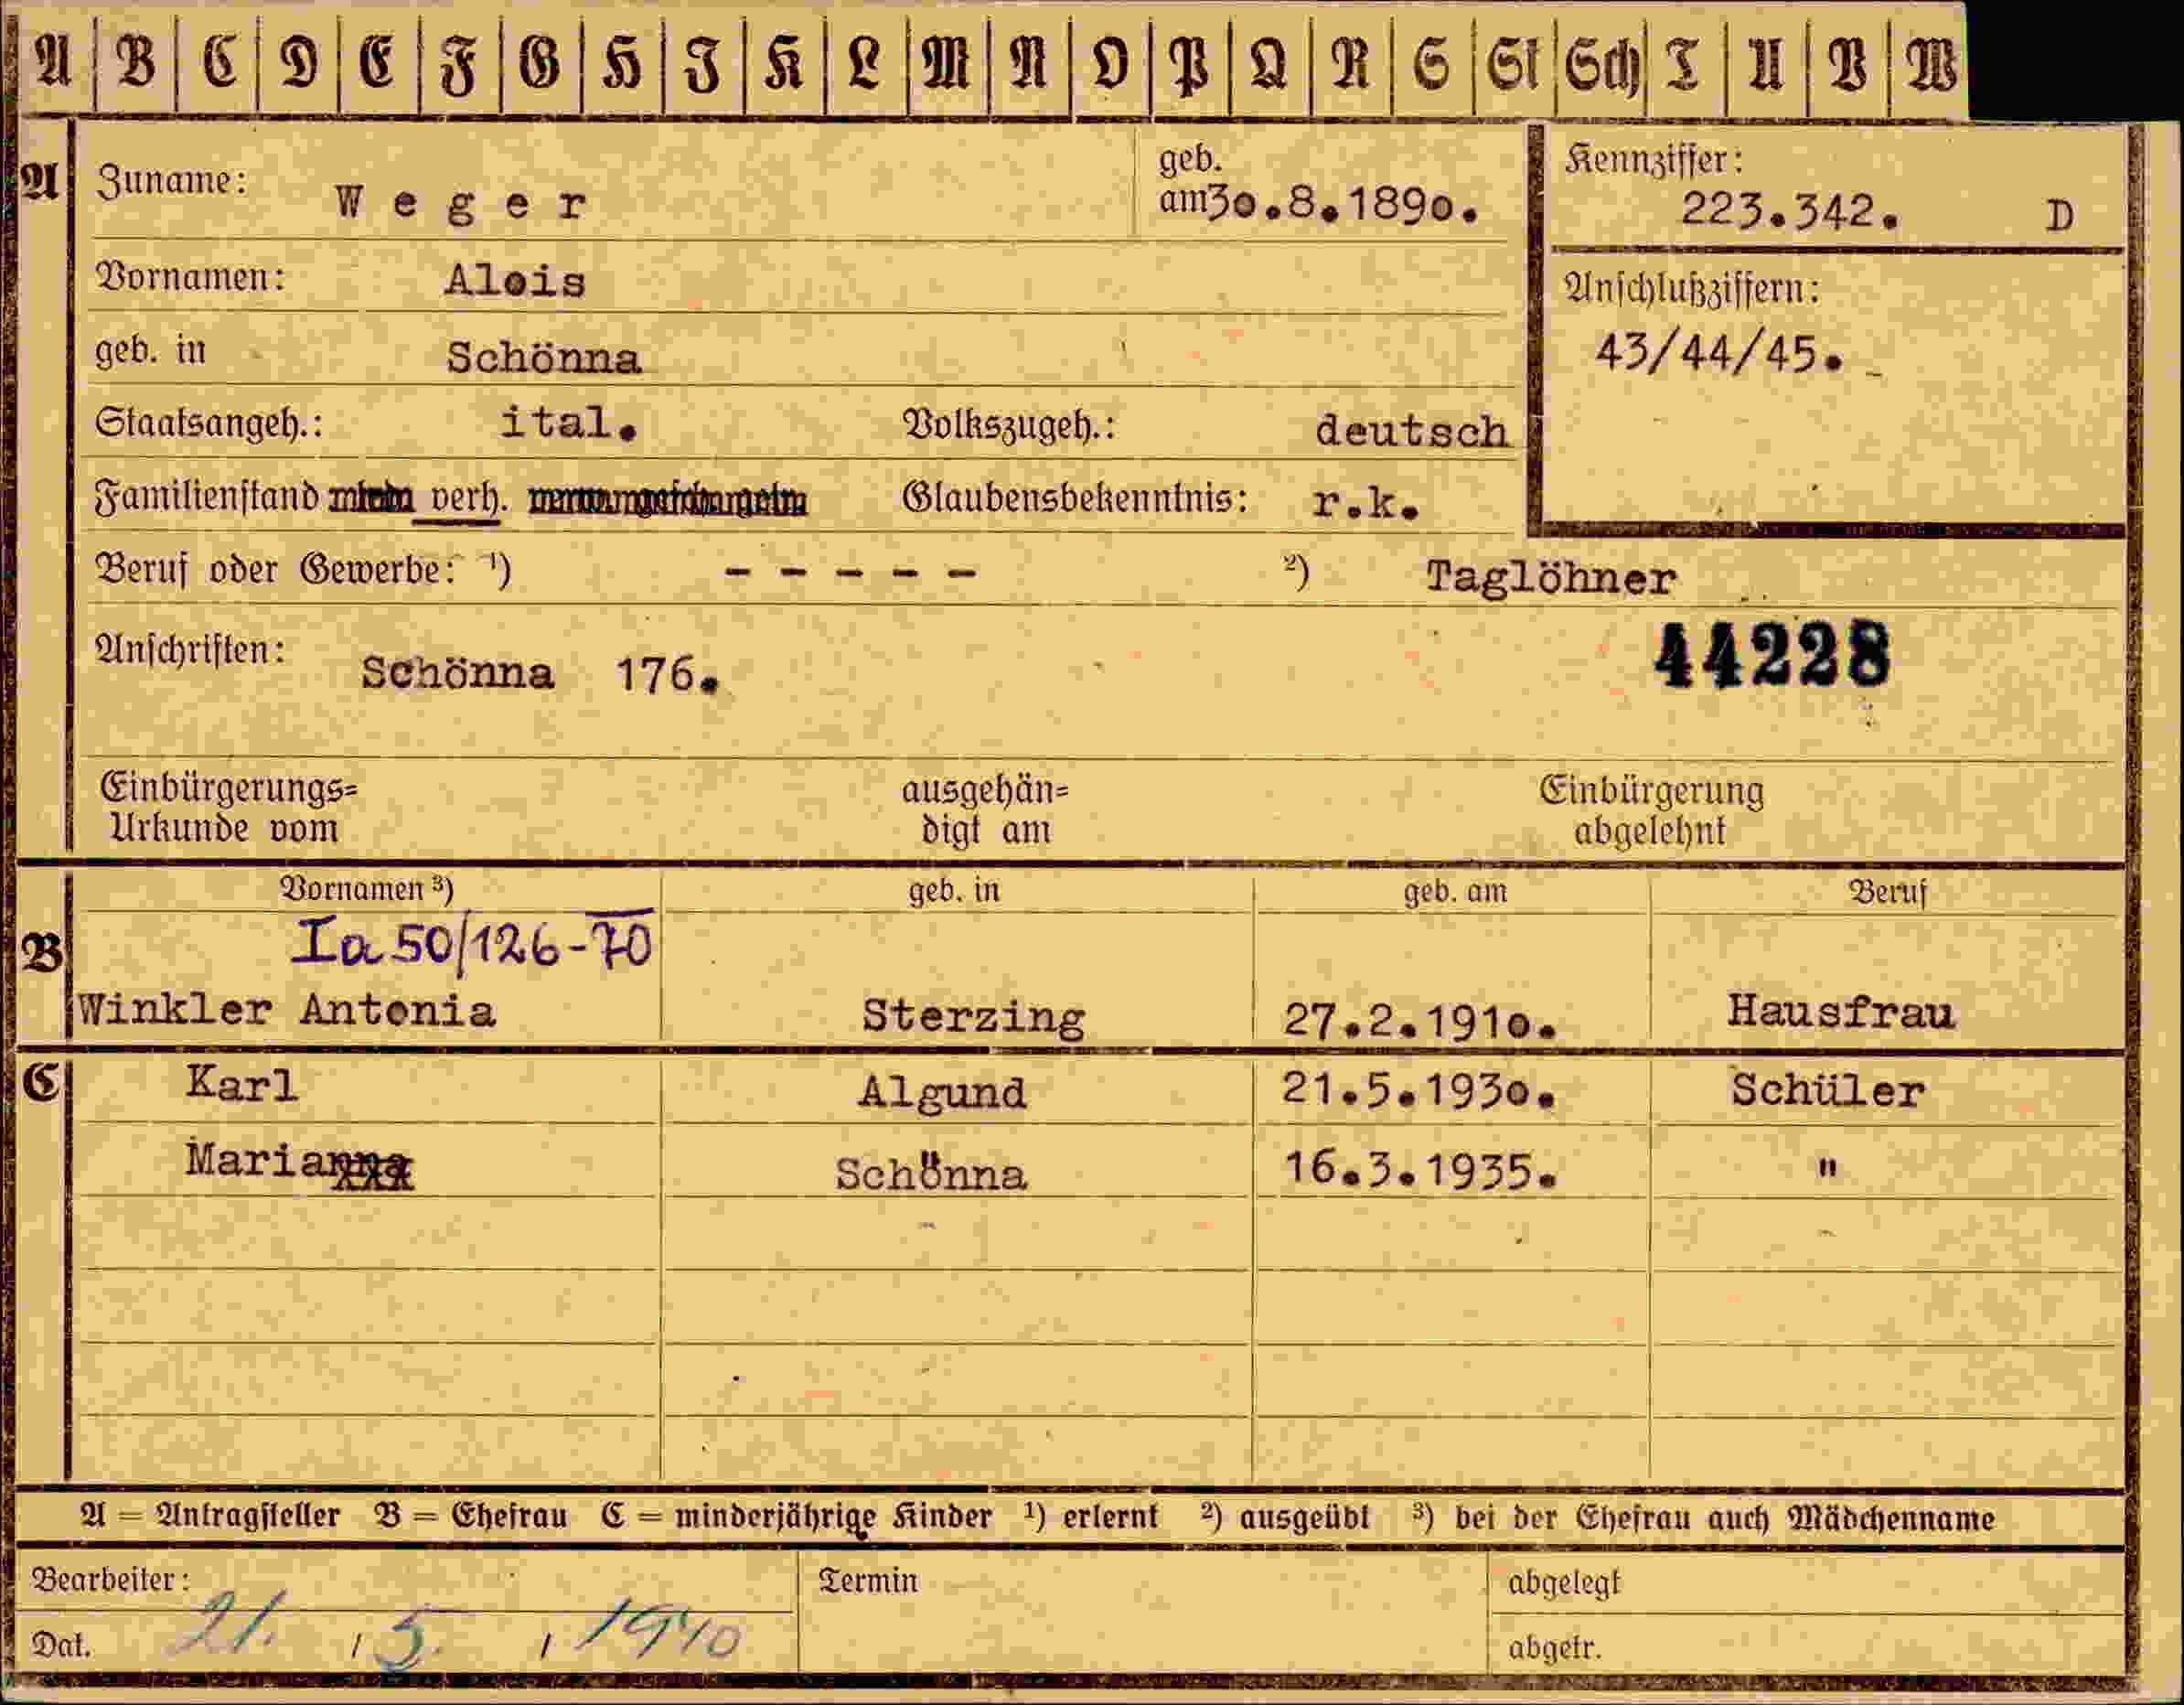 A B C D E F G H I K L M N O P Q R S St Sch T U V W
A Zuname: Weger geb. am 30.8.1890. Kennziffer: 223.342. D
Vornamen: Alois Anschlußziffern:
geb. in Schönna 43/44/45.
Staatsangeh.: ital. Volkszugeh.: deutsch
Familienstand verh. Glaubensbekenntnis: r.k.
Beruf oder Gewerbe: ¹) - - - - - ²) Taglöhner
Anschriften: Schönna 176. 44228
Einbürgerungs= ausgehän= Einbürgerung
Urkunde vom digt am abgelehnt
Vornamen ³) geb. in geb. am Beruf
Ia 50/126-70
B Winkler Antonia Sterzing 27.2.1910. Hausfrau
C Karl Algund 21.5.1930. Schüler
Maria Schönna 16.3.1935. "
A = Antragsteller B = Ehefrau C = minderjährige Kinder ¹) erlernt ²) ausgeübt ³) bei der Ehefrau auch Mädchenname
Bearbeiter: Termin abgelegt
Dat. 21. / 5. / 1940 abgetr.